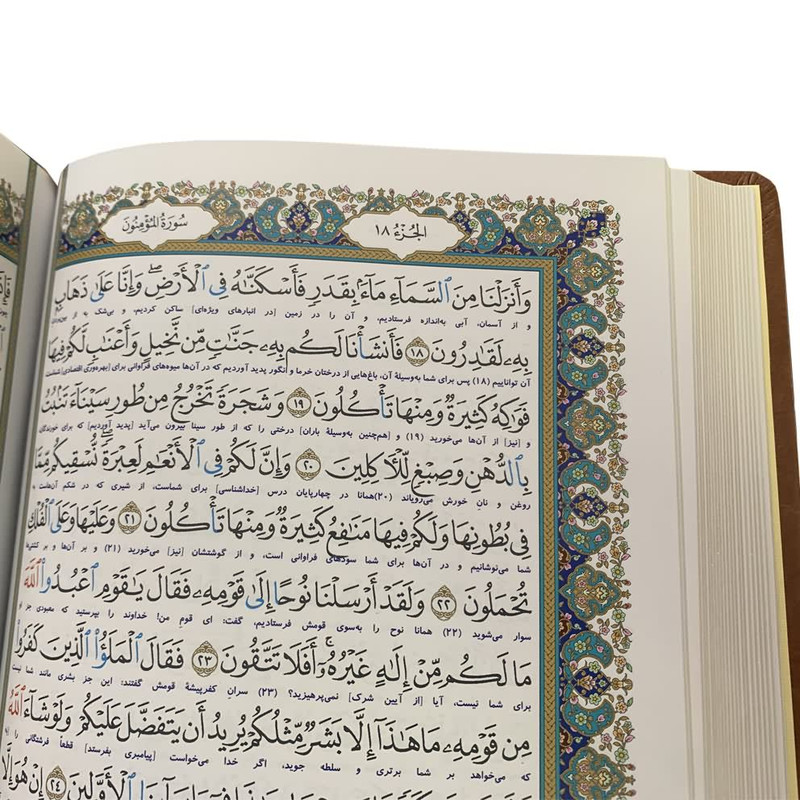 الجُزءُ ١٨
سُورَةُ المُؤمِنُونَ
وَأَنزَلْنَا مِنَ السَّمَاءِ مَاءً بِقَدَرٍ فَأَسْكَنَّاهُ فِي الْأَرْضِ وَإِنَّا عَلَىٰ ذَهَابٍ
و از آسمان، آبی به‌اندازه فرستادیم، و آن را در زمین [در انبارهای ویژه‌ای] ساکن کردیم، و بی‌شک به از بین‌بردن
بِهِ لَقَادِرُونَ ١٨ فَأَنشَأْنَا لَكُم بِهِ جَنَّاتٍ مِّن نَّخِيلٍ وَأَعْنَابٍ لَّكُمْ فِيهَا
آن تواناییم (۱۸) پس برای شما به‌وسیلهٔ آن، باغ‌هایی از درختان خرما و انگور پدید آوردیم که در آن‌ها میوه‌های فراوانی برای [بهره‌وری اقتصادی] شماست
فَوَاكِهُ كَثِيرَةٌ وَمِنْهَا تَأْكُلُونَ ١٩ وَشَجَرَةً تَخْرُجُ مِن طُورِ سَيْنَاءَ تَنبُتُ
و [نیز] از آن‌ها می‌خورید (۱۹) و [هم‌چنین به‌وسیلهٔ باران] درختی را که از طور سینا بیرون می‌آید [پدید آوردیم] که برای خورندگان،
بِالدُّهْنِ وَصِبْغٍ لِّلْآكِلِينَ ٢٠ وَإِنَّ لَكُمْ فِي الْأَنْعَامِ لَعِبْرَةً نُّسْقِيكُم مِّمَّا
روغن و نان خورش می‌رویاند (۲۰) همانا در چهارپایان درس [خداشناسی] برای شماست، از شیری که در شکم آن‌هاست به
فِي بُطُونِهَا وَلَكُمْ فِيهَا مَنَافِعُ كَثِيرَةٌ وَمِنْهَا تَأْكُلُونَ ٢١ وَعَلَيْهَا وَعَلَى الْفُلْكِ
شما می‌نوشانیم و در آن‌ها برای شما سودهای فراوانی است، و از گوشتشان [نیز] می‌خورید (۲۱) و بر آن‌ها و بر کشتی‌ها
تُحْمَلُونَ ٢٢ وَلَقَدْ أَرْسَلْنَا نُوحًا إِلَىٰ قَوْمِهِ فَقَالَ يَا قَوْمِ اعْبُدُوا اللَّهَ
سوار می‌شوید (۲۲) همانا نوح را به‌سوی قومش فرستادیم، گفت: ای قوم من! خداوند را بپرستید که معبودی جز او
مَا لَكُم مِّنْ إِلَٰهٍ غَيْرُهُ أَفَلَا تَتَّقُونَ ٢٣ فَقَالَ الْمَلَؤُا الَّذِينَ كَفَرُوا
برای شما نیست، آیا [از آیین شرک] نمی‌پرهیزید؟ (۲۳) سران کفرپیشهٔ قومش گفتند: این جز بشری مانند شما نیست
مِن قَوْمِهِ مَا هَٰذَا إِلَّا بَشَرٌ مِّثْلُكُمْ يُرِيدُ أَن يَتَفَضَّلَ عَلَيْكُمْ وَلَوْ شَاءَ اللَّهُ
که می‌خواهد بر شما برتری و سلطه جوید، اگر خدا می‌خواست [پیامبری بفرستد] قطعاً فرشتگانی را
الْأَوَّلِينَ ٢٤ إِنْ هُوَ إِلَّا